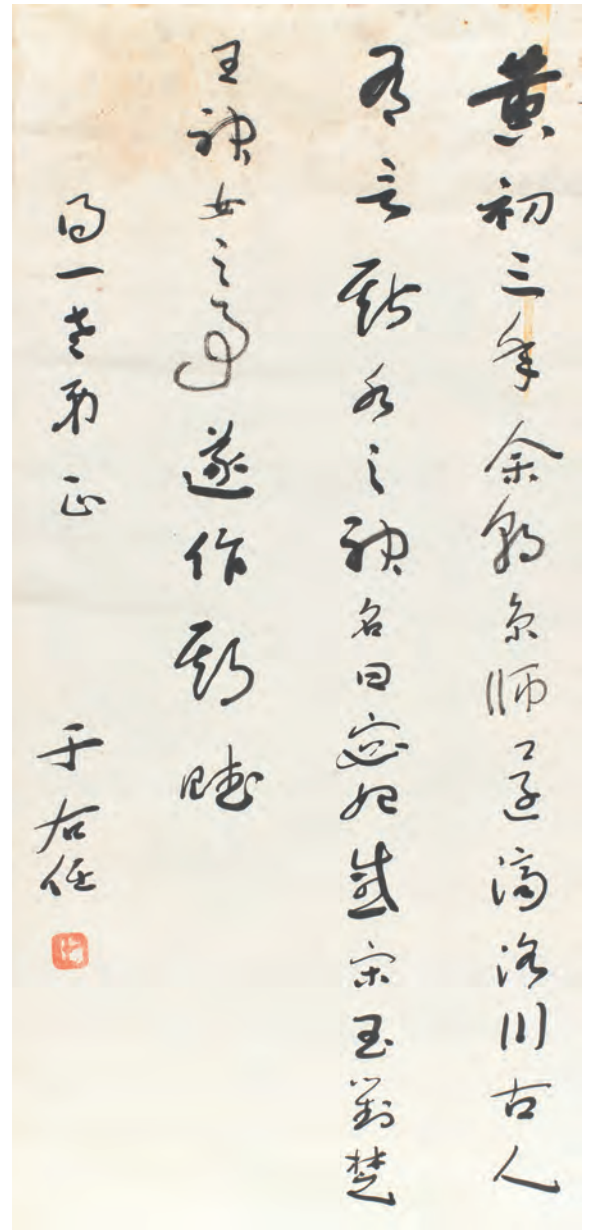 黃初三年余朝京師還濟洛川古人
有言斯水之神名曰宓妃感宋玉對楚
王神女之事遂作斯賦
得一老弟正
于右任